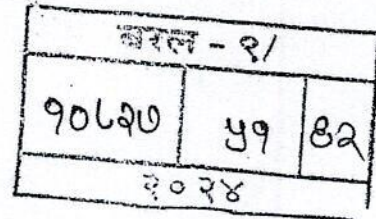 बरल - १/
१०८२७ ५१ ६२
२०२४